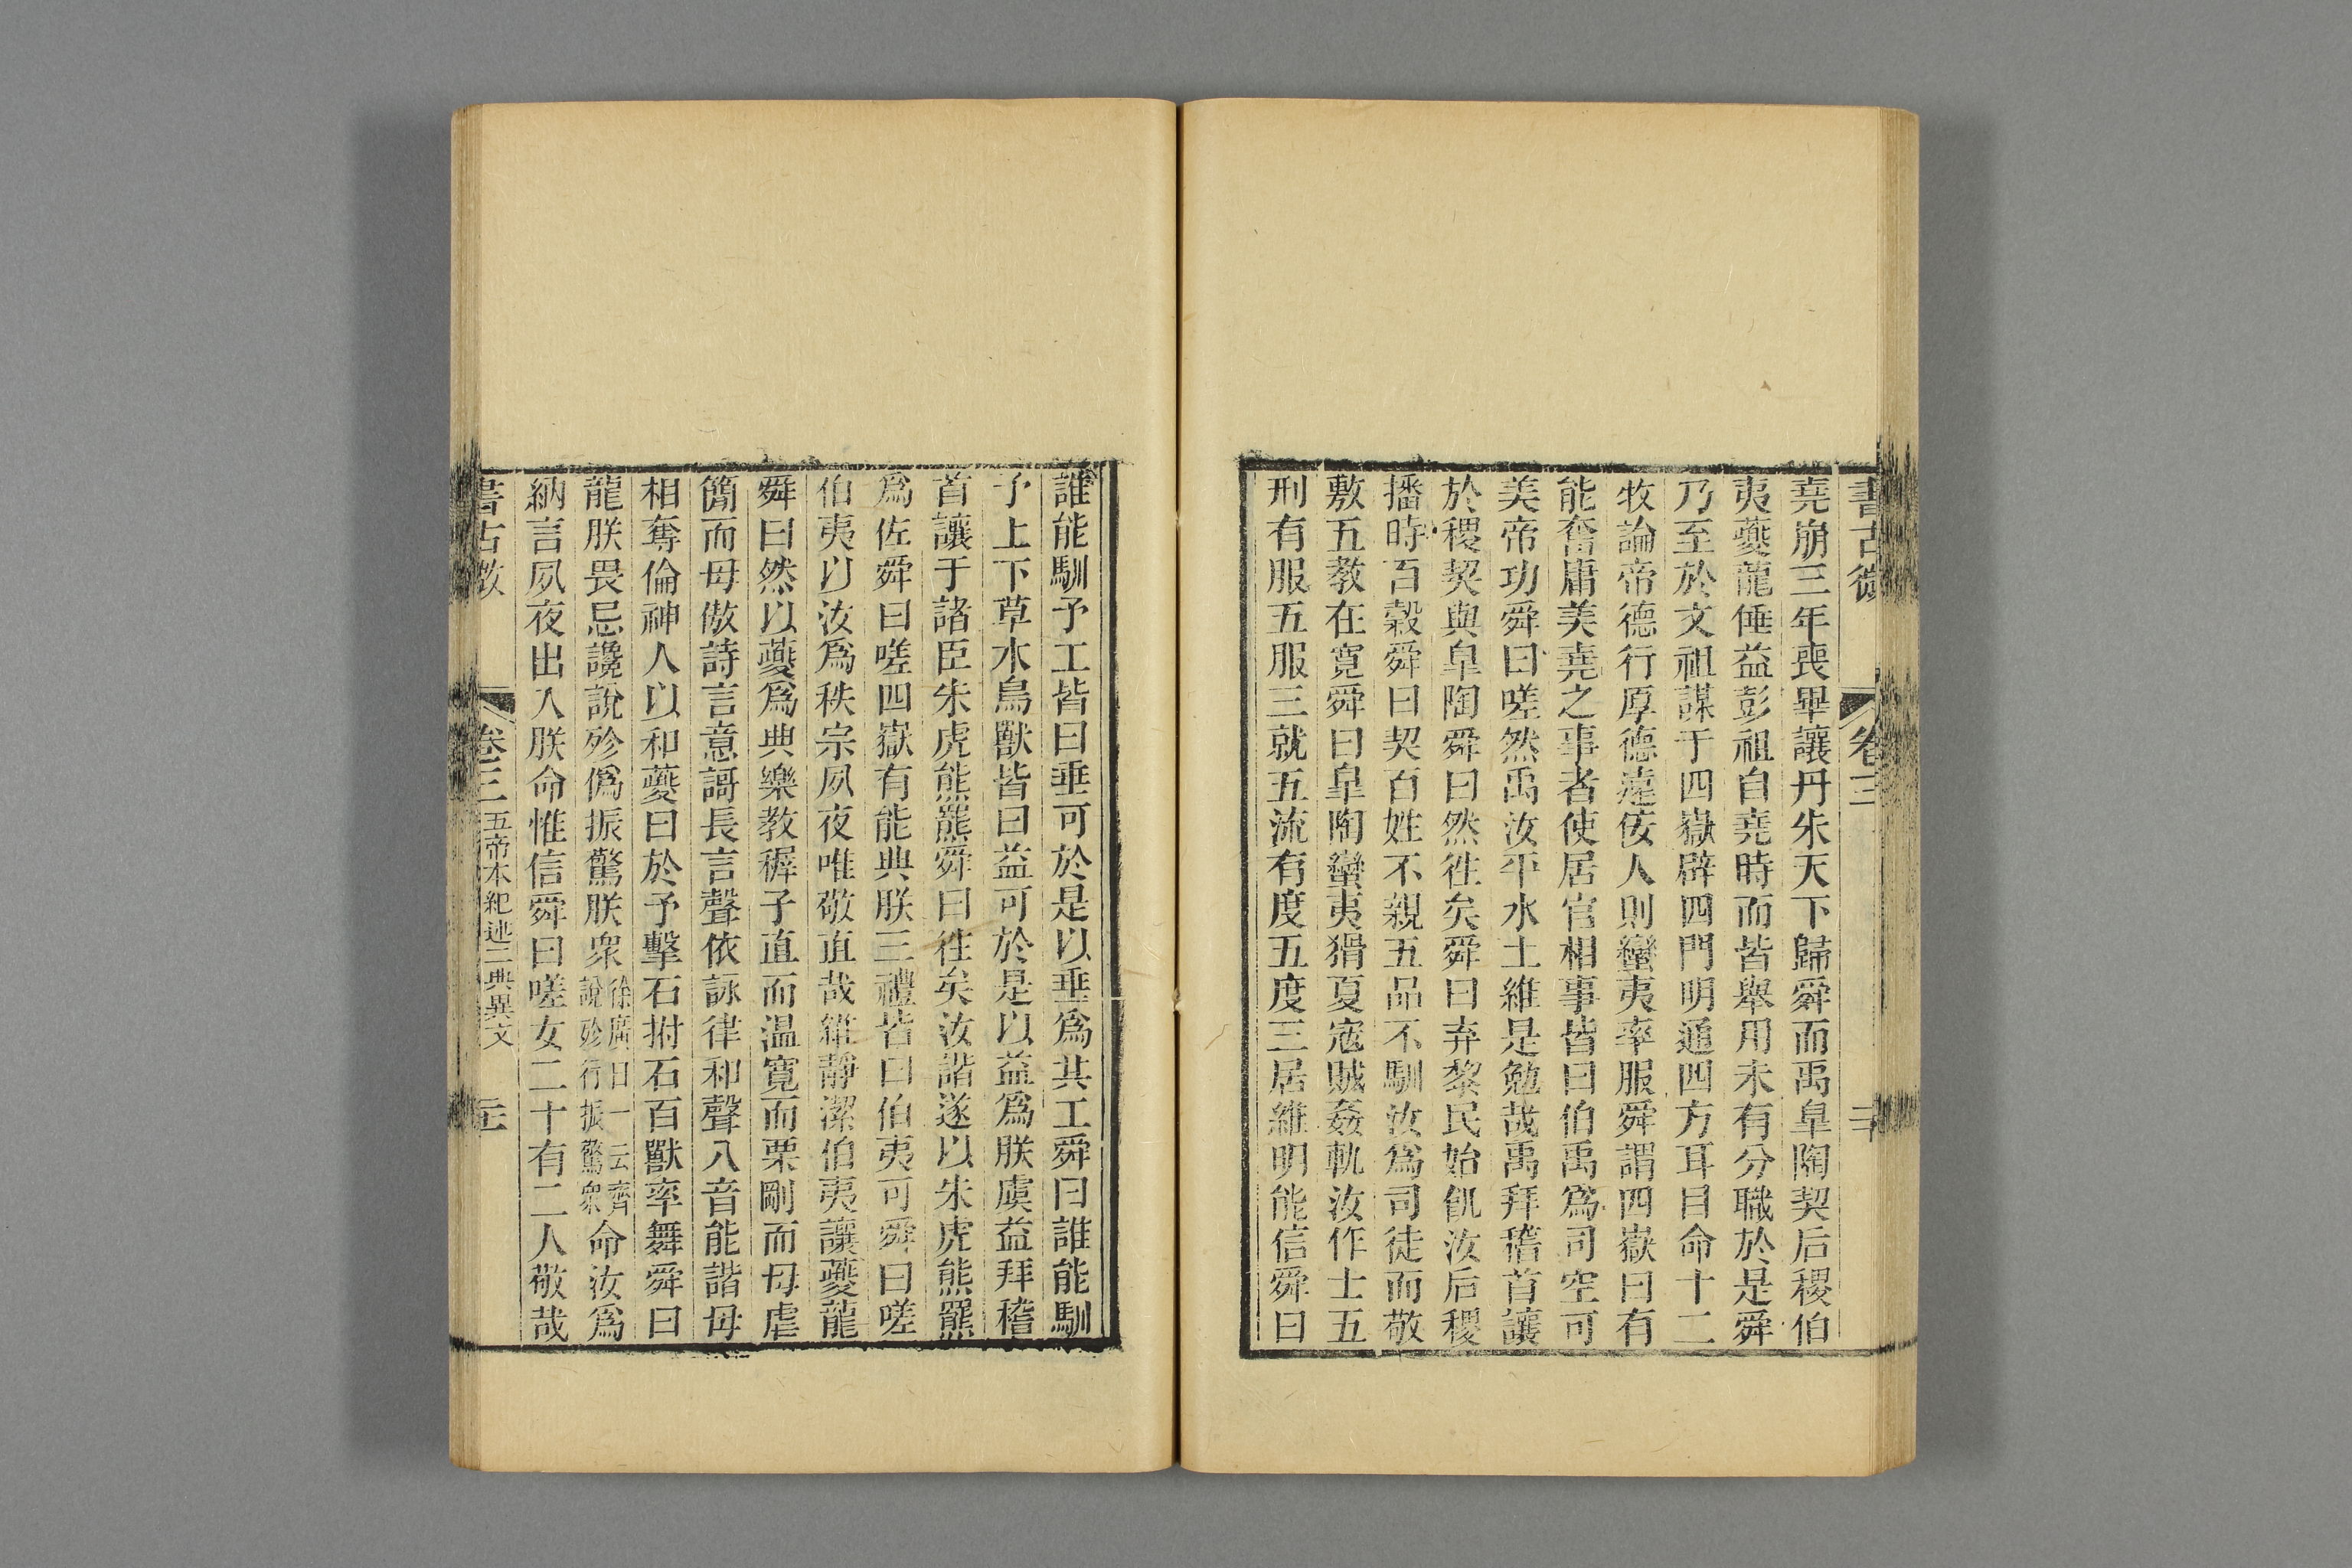 書古微 卷三 二十
堯崩三年喪畢讓丹朱天下歸舜而禹皐陶契后稷伯
夷夔龍倕益彭祖自堯時而皆舉用未有分職於是舜
乃至於文祖謀于四嶽辟四門明通四方耳目命十二
牧論帝德行厚德遠佞人則蠻夷率服舜謂四嶽曰有
能奮庸美堯之事者使居官相事皆曰伯禹爲司空可
美帝功舜曰嗟然禹汝平水土維是勉哉禹拜稽首讓
於稷契與皐陶舜曰然徃矣舜曰弃黎民始飢汝后稷
播時百穀舜曰契百姓不親五品不馴汝爲司徒而敬
敷五教在寬舜曰皐陶蠻夷猾夏寇賊姦軌汝作士五
刑有服五服三就五流有度五度三居維明能信舜曰
誰能馴予工皆曰垂可於是以垂爲共工舜曰誰能馴
予上下草木鳥獸皆曰益可於是以益爲朕虞益拜稽
首讓于諸臣朱虎熊羆舜曰徃矣汝諧遂以朱虎熊羆
爲佐舜曰嗟四嶽有能典朕三禮皆曰伯夷可舜曰嗟
伯夷以汝爲秩宗夙夜唯敬直哉維靜潔伯夷讓夔龍
舜曰然以夔爲典樂教穉子直而温寛而栗剛而毋虐
簡而毋傲詩言意謌長言聲依詠律和聲八音能諧毋
相奪倫神人以和夔曰於予擊石拊石百獸率舞舜曰
龍朕畏忌讒說殄僞振驚朕衆徐廣曰一云齊說殄行振驚衆命汝爲
納言夙夜出入朕命惟信舜曰嗟女二十有二人敬哉
書古微 卷三 五帝本紀述二典異文